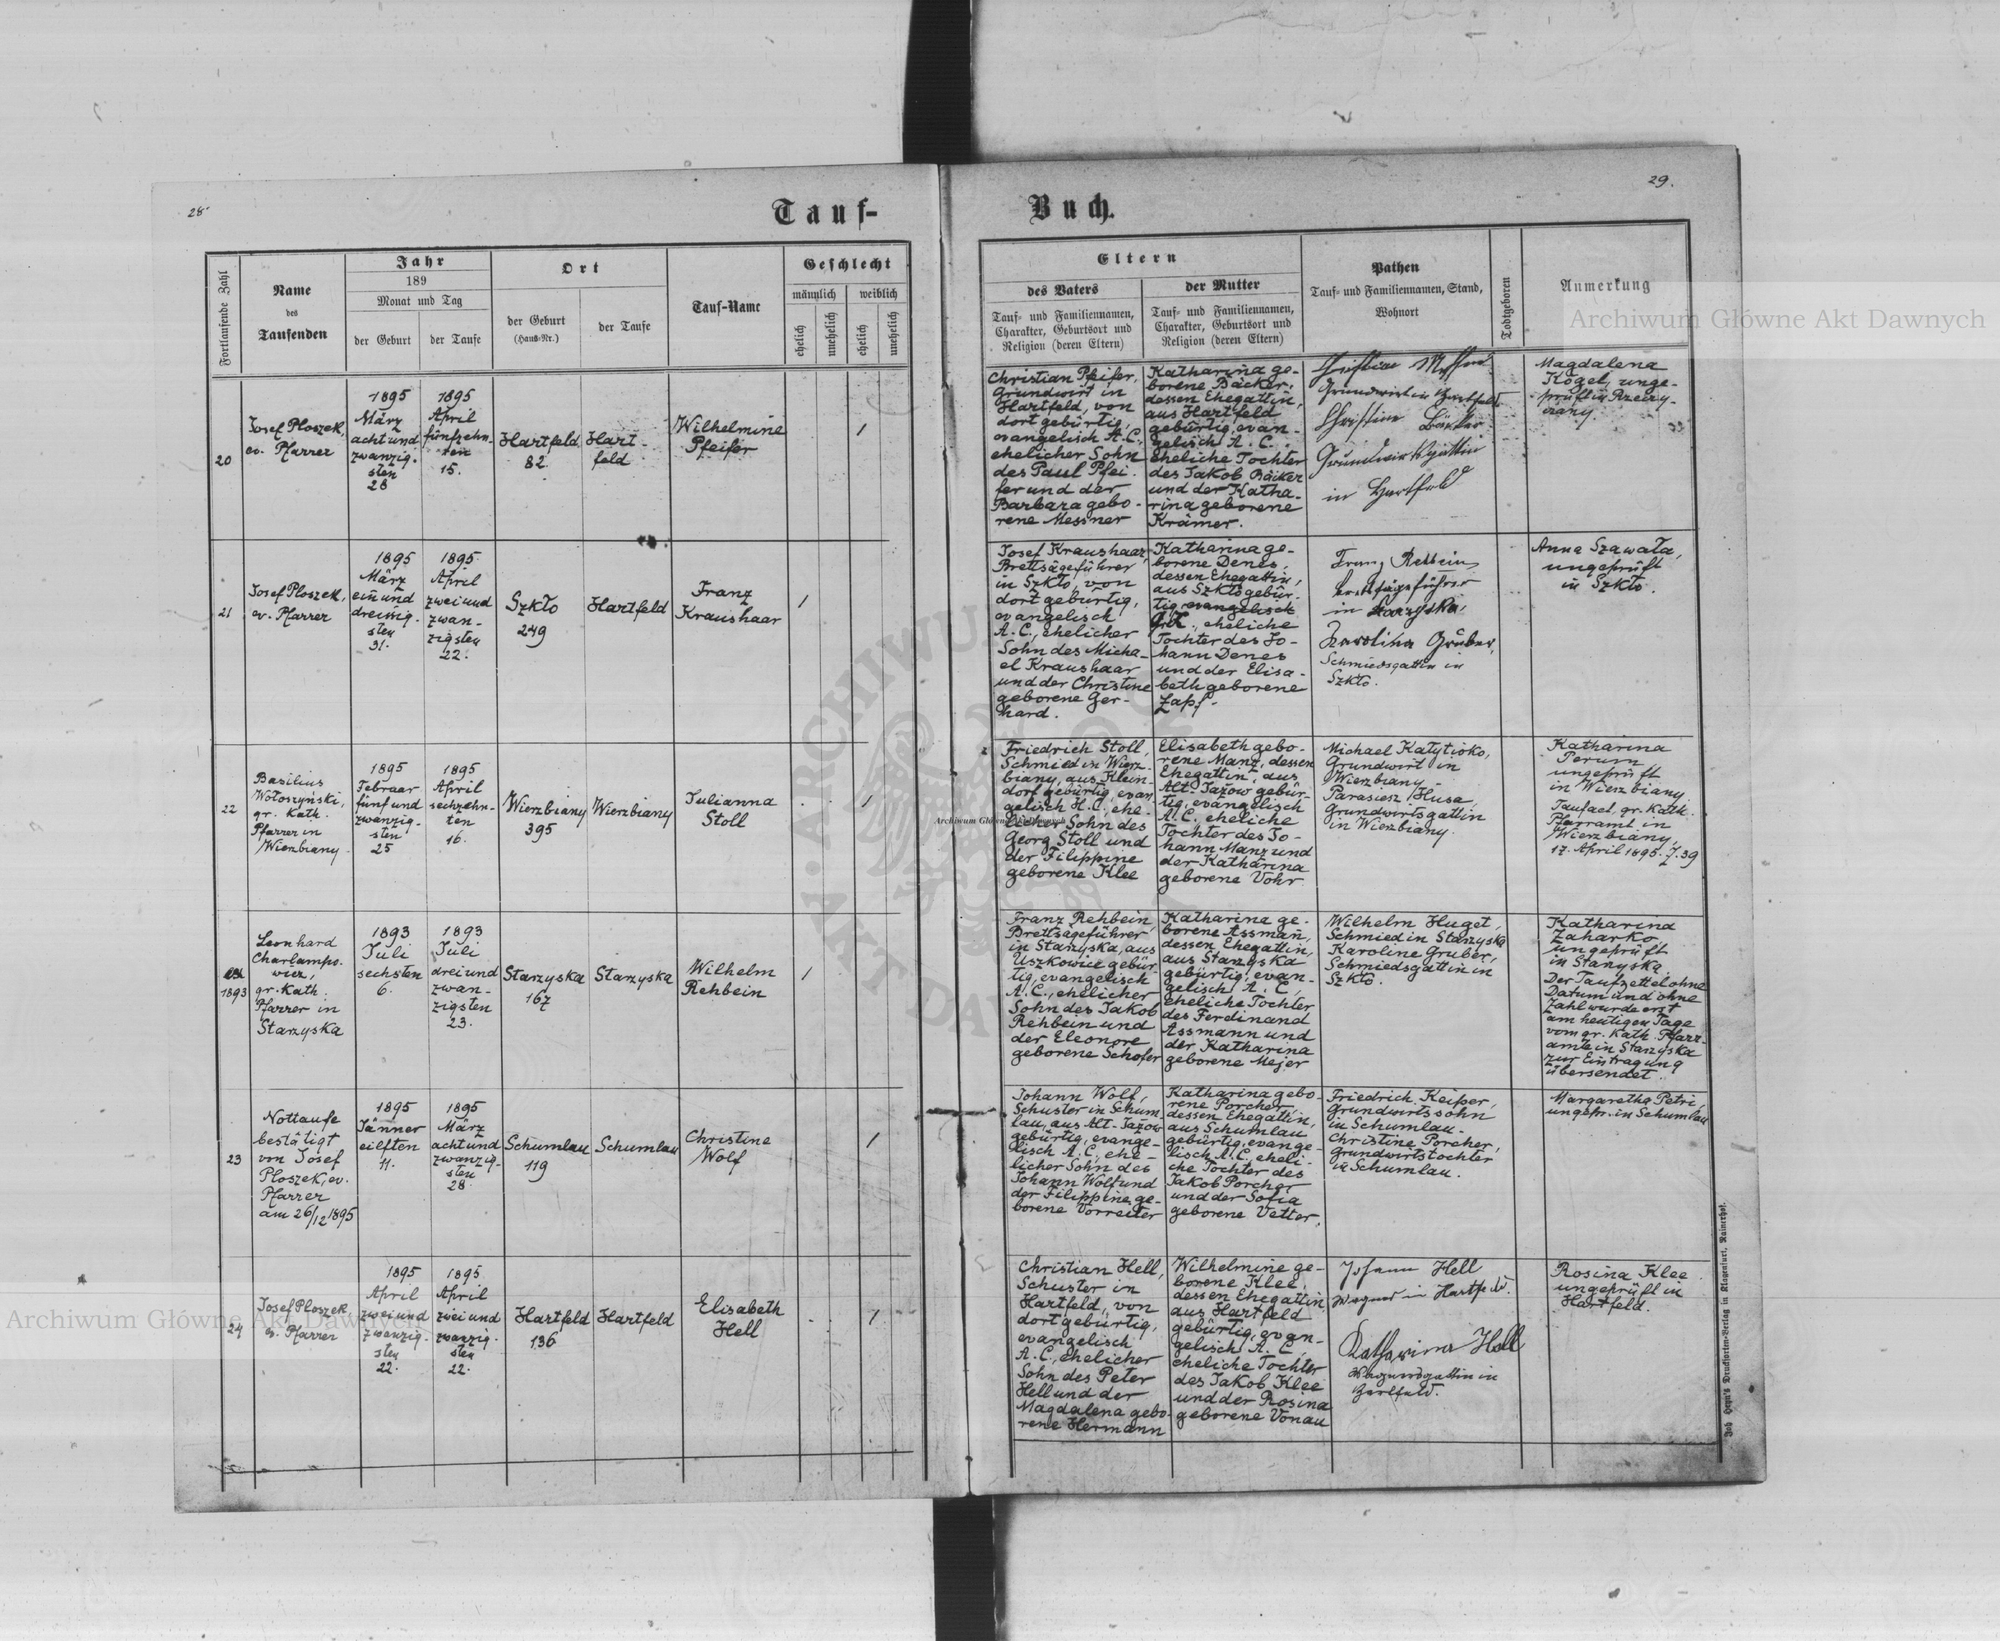 28
Tauf-
Buch.
29.
Fortlaufende Zahl
Name
des
Taufenden
Jahr
189
Monat und Tag
der Geburt
der Taufe
Ort
der Geburt
(Haus-Nr.)
der Taufe
Tauf-Name
Geschlecht
männlich
weiblich
ehelich
unehelich
ehelich
unehelich
Eltern
des Vaters
Tauf- und Familiennamen,
Charakter, Geburtsort und
Religion (deren Eltern)
der Mutter
Tauf- und Familiennamen,
Charakter, Geburtsort und
Religion (deren Eltern)
Pathen
Tauf- und Familiennamen, Stand,
Wohnort
Todtgeboren
Anmerkung
Archiwum Główne Akt Dawnych
20
Josef Ploszek,
ev. Pfarrer
1895
März
acht und
zwanzig-
sten
28
1895
April
fünfzehn-
ten
15.
Hartfeld
82
Hart
feld
Wilhelmine
Pfeifer
1
Christian Pfeifer,
Grundwirt in
Hartfeld, von
dort gebürtig,
evangelisch A.C.,
ehelicher Sohn
des Paul Pfei-
fer und der
Barbara gebo-
rene Messner
Katharina ge-
borene Bäcker,
dessen Ehegattin,
aus Hartfeld
gebürtig, evan-
gelisch A.C.
eheliche Tochter
des Jakob Bäcker
und der Katha-
rina geborene
Krämer.
Christian
Grundwirt in Hartfeld
Christine Bäcker
Grundwirtsgattin
in Hartfeld
Magdalena
Kogel, unge-
prüft in
21
Josef Ploszek,
ev. Pfarrer
1895
März
ein und
dreissig-
sten
31.
1895.
April
zwei und
zwan-
zigsten
22.
Szkło
249
Hartfeld
Franz
Kraushaar
1
Josef Kraushaar,
Brettsägeführer
in Szkło, von
dort gebürtig,
evangelisch
A.C., ehelicher
Sohn des Micha-
el Kraushaar
und der Christine
geborene Ger-
hard.
Katharina ge-
borene Denes,
dessen Ehegattin,
aus Szkło gebür-
tig, evangelisch
eheliche
Tochter des Jo-
hann Denes
und der Elisa-
beth geborene
Zapf.
Franz Rehbein
Brettsägeführer
in Starzyska,
Karolina Gruber,
Schmiedsgattin in
Szkło.
Anna Szawała,
ungeprüft
in Szkło.
22
Basilius
Wołoszyński,
gr. Kath.
Pfarrer in
Wierzbiany
1895
Februar
fünf und
zwanzig-
sten
25
1895
April
sechzehn-
ten
16.
Wierzbiany
395
Wierzbiany
Julianna
Stoll
1
Friedrich Stoll,
Schmied in Wierz-
biany, aus Klein-
dorf gebürtig, evan-
gelisch H.C., ehe-
licher Sohn des
Georg Stoll und
der Filippine
geborene Klee
Elisabeth gebo-
rene Manz, dessen
Ehegattin, aus
Alt-Jazow gebür-
tig, evangelisch
A.C., eheliche
Tochter des Jo-
hann Manz und
der Katharina
geborene Vohr
Michael Katytioko,
Grundwirt in
Wierzbiany
Parasiesz Husa,
Grundwirtsgattin
in Wierzbiany.
Katharina
Perum
ungeprüft
in Wierzbiany.
Taufact, gr. Kath.
Pfarramt in
Wierzbiany,
17. April 1895. Z. 39
Archiwum Główne Akt Dawnych
1893
Leonhard
Charlampo-
wicz,
gr. Kath.
Pfarrer in
Starzyska
1893
Juli
sechsten
6.
1893
Juli
drei und
zwan-
zigsten
23.
Starzyska
167
Starzyska
Wilhelm
Rehbein
1
Franz Rehbein,
Brettsägeführer
in Starzyska, aus
Uszkowice gebür-
tig, evangelisch
A.C., ehelicher
Sohn des Jakob
Rehbein und
der Eleonore
geborene Schofer
Katharina ge-
borene Assmann,
dessen Ehegattin,
aus Starzyska
gebürtig, evan-
gelisch A.C.,
eheliche Tochter
des Ferdinand
Assmann und
der Katharina
geborene Mejer
Wilhelm Huget,
Schmied in Starzyska
Karoline Gruber,
Schmiedsgattin in
Szkło.
Katharina
Zaharko
ungeprüft
in Starzyska.
Der Taufzettel ohne
Datum und ohne
Zahl wurde erst
am heutigen Tage
vom gr. Kath. Pfarr-
amte in Starzyska
zur Eintragung
übersendet.
23
Nottaufe
bestätigt
von Josef
Ploszek, ev.
Pfarrer
am 26/12 1895
1895
Jänner
eilften
11.
1895
März
acht und
zwanzig-
sten
28.
Schumlau
119
Schumlau
Christine
Wolf
1
Johann Wolf,
Schuster in Schum
lau, aus Alt-Jazow
gebürtig, evange-
lisch A.C., ehe-
licher Sohn des
Johann Wolf und
der Filippine ge-
borene Vorreiter
Katharina gebo-
rene Porcher,
dessen Ehegattin,
aus Schumlau
gebürtig, evange-
lisch A.C., eheli-
che Tochter des
Jakob Porcher
und der Sofia
geborene Vetter.
Friedrich Keiper,
Grundwirtssohn
in Schumlau.
Christine Porcher,
Grundwirtstochter
in Schumlau.
Margaretha Petri,
ungepr. in Schumlau
24
Josef Ploszek,
ev. Pfarrer
1895
April
zwei und
zwanzig-
sten
22.
1895
April
zwei und
zwanzig-
sten
22.
Hartfeld
136
Hartfeld
Elisabeth
Hell
1
Christian Hell,
Schuster in
Hartfeld, von
dort gebürtig,
evangelisch
A.C., ehelicher
Sohn des Peter
Hell und der
Magdalena gebo-
rene Hermann
Wilhelmine ge-
borene Klee,
dessen Ehegattin,
aus Hartfeld
gebürtig, evan-
gelisch A.C.,
eheliche Tochter
des Jakob Klee
und der Rosina
geborene Vonau
Johann Hell
Wagner in Hartfeld.
Katharina Hell
Wagnersgattin in
Hartfeld.
Rosina Klee
ungeprüft in
Hartfeld.
Archiwum Główne Akt Dawnych
Joh. Heyn's Drucksorten-Verlag in Klagenfurt, Rainerhof.